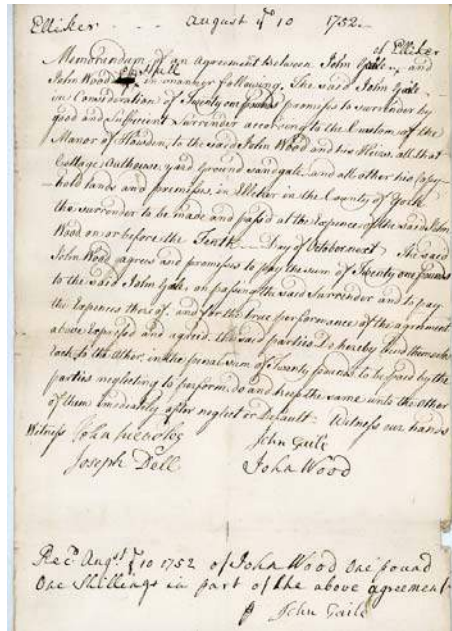 Elliker August ye 10 1752
Memorandum of an Agreement Between John Gale of Elliker and
John Wood of Hull in manner following. The said John Gale
in Consideration of Twenty one pounds promises to surrender by
good and sufficient Surrender according to the Custom of the
Manor of Howden, to the said John Wood and his Heirs, all that
Cottage, Outhouse, yard Ground sandgate and all other his Copy-
hold lands and premises, in Elliker in the County of York
the surrender to be made and pass'd at the Expence of the said John
Wood on or before the Tenth day of October next The said
John Wood agrees and promises to pay the sum of Twenty one pounds
to the said John Gale, on passing the said Surrender and to pay
the Expences thereof, and for the true performance of the agreement
above Expressed and agreed, the said parties Do hereby bind themselves
Each to the other, in the penal sum of Twenty pounds to be paid by the
parties neglecting to perform, do and keep the same unto the other
of them imediately after neglect or Default. Witness our hands
Witness John John Gaile
Joseph Dell John Wood
Recd Augst ye 10 1752 of John Wood One pound
One Shillings in part of the above agreement
John Gaile